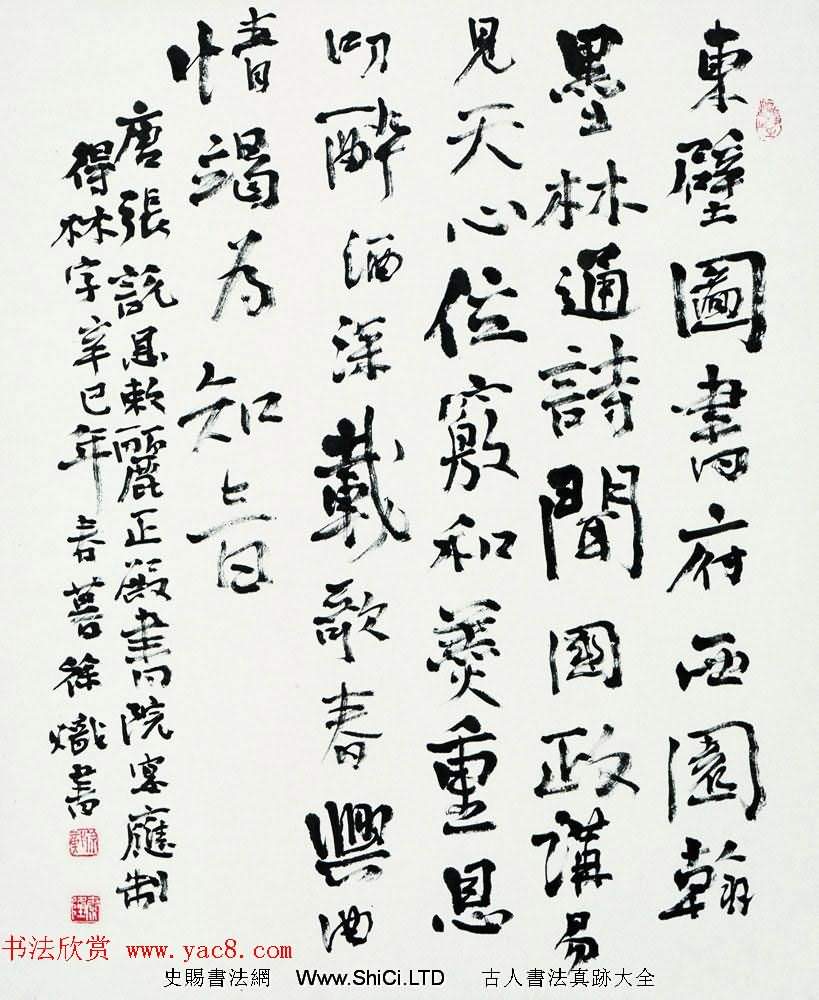 東壁圖書府西園翰
墨林通詩聞國政講易
見天心位竊和羹重恩
叨醉酒深載歌春興曲
情竭為知音
唐張說恩敕麗正殿書院宴應制
得林字辛巳年春暮徐熾書
书法欣赏 www.yac8.com
史賜書法網 Www.ShiCi.LTD 古人書法真跡大全